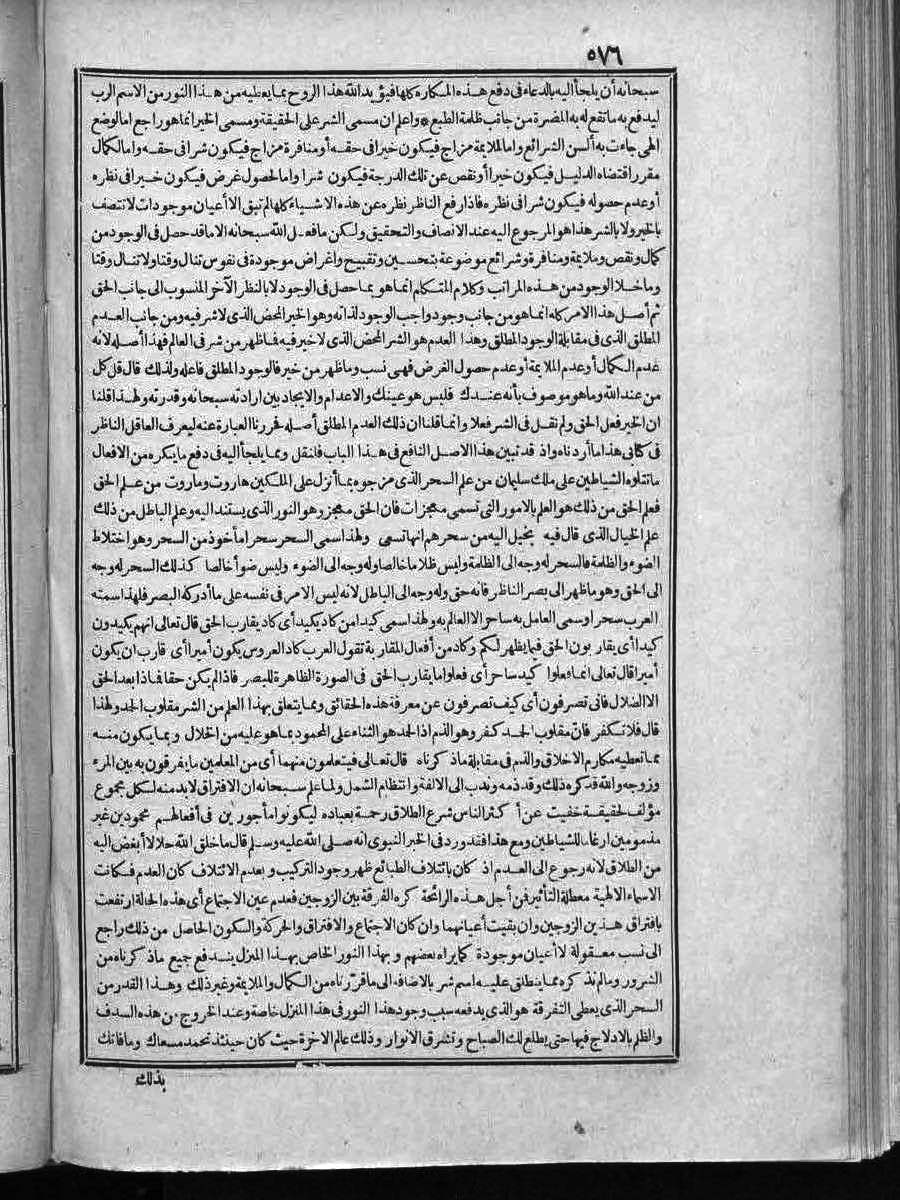 ٥٧٦
سبحانه أن يلجأ اليه بالدعاء فى دفع هذه المكاره كلها فيؤيد الله هذا الروح بما يعطيه من هذا النور من الاسم الرب
ليدفع به ما تقع له به المضرة من جانب ظلمة الطبع * واعلم ان مسمى الشر على الحقيقة ومسمى الخير انما هو راجع اما لوضع
الهى جاءت به ألسن الشرائع واما لملايمة مزاج فيكون خيرا فى حقه أو منافرة مزاج فيكون شرا فى حقه واما لكمال
مقرر اقتضاه الدليل فيكون خيرا أو نقص عن تلك الدرجة فيكون شرا واما لحصول غرض فيكون خيرا فى نظره
أو عدم حصوله فيكون شرا فى نظره فاذا رفع الناظر نظره عن هذه الاشياء كلها لم تبق الا أعيان موجودات لا تتصف
بالخير ولا بالشر هذا هو المرجوع اليه عند الانصاف والتحقيق ولكن ما فعل الله سبحانه الا ما قد حصل فى الوجود من
كمال ونقص وملايمة ومنافرة وشرائع موضوعة بتحسين وتقبيح وأغراض موجودة فى نفوس تنال وقتا ولا تنال وقتا
وما خلا الوجود من هذه المراتب وكلام المتكلم انما هو بما حصل فى الوجود لا بالنظر الآخر المنسوب الى جانب الحق
ثم أصل هذا الامر كله انما هو من جانب وجود واجب الوجود لذاته وهو الخير المحض الذى لا شر فيه ومن جانب العدم
المطلق الذى فى مقابلة الوجود المطلق وهذا العدم هو الشر المحض الذى لا خير فيه فما ظهر من شر فى العالم فهذا أصله لانه
عدم الكمال أو عدم الملايمة أو عدم حصول الغرض فهى نسب وما ظهر من خير فالوجود المطلق فاعله ولذلك قال قل كل
من عند الله وما هو موصوف بأنه عندك فليس هو عينك والاعدام والايجاد بين ارادته سبحانه وقدرته ولهذا قلنا
ان الخير فعل الحق ولم نقل فى الشر فعلا وانما قلنا ان ذلك العدم المطلق أصله فحررنا العبارة عنه ليعرف العاقل الناظر
فى كتابى هذا ما أردناه واذ قد تبين هذا الاصل النافع فى هذا الباب فلنقل ومما يلجأ اليه فى دفع ما يكره من الافعال
ما تتلوه الشياطين على ملك سليمان من علم السحر الذى مزجوه بما أنزل على الملكين هاروت وماروت من علم الحق
فعلم الحق من ذلك هو العلم بالامور التى تسمى معجزات فان الحق معجز وهو النور الذى يستند اليه وعلم الباطل من ذلك
علم الخيال الذى قال فيه يخيل اليه من سحرهم انها تسعى ولهذا اسمى السحر سحرا مأخوذ من السحر وهو اختلاط
الضوء والظلمة فالسحر له وجه الى الظلمة وليس ظلاما خالصا وله وجه الى الضوء وليس ضوأ خالصا كذلك السحر له وجه
الى الحق وهو ما ظهر الى بصر الناظر فانه حق وله وجه الى الباطل لانه ليس الامر فى نفسه على ما أدركه البصر فلهذا سمته
العرب سحرا وسمى العامل به ساحرا لا العالم به ولهذا سمى كيدا من كاد يكيد أى كاد يقارب الحق قال تعالى انهم يكيدون
كيدا أى يقاربون الحق فيما يظهر لكم وكاد من أفعال المقاربة تقول العرب كاد العروس يكون أميرا أى قارب ان يكون
أميرا قال تعالى انما فعلوا كيد ساحر أى فعلوا ما يقارب الحق فى الصورة الظاهرة للبصر فاذا لم يكن حقا فماذا بعد الحق
الا الضلال فانى تصرفون أى كيف تصرفون عن معرفة هذه الحقائق ومما يتعلق بهذا العلم من الشر مقلوب الحمد ولهذا
قال فلا تكفر فان مقلوب الحمد كفر وهو الذم اذ الحمد هو الثناء على المحمود بما هو عليه من الخلال وبما يكون منه
مما تعطيه مكارم الاخلاق والذم فى مقابلة ما ذكرناه قال تعالى فيتعلمون منهما أى من المعلمين ما يفرقون به بين المرء
وزوجه والله قد كره ذلك وقد ذمه وندب الى الالفة وانتظام الشمل ولما علم سبحانه ان الافتراق لا بد منه لكل مجموع
مؤلف لحقيقة خفيت عن أكثر الناس شرع الطلاق رحمة بعباده ليكونوا مأجورين فى أفعالهم محمودين غير
مذمومين ارغاما للشياطين ومع هذا فقد ورد فى الخبر النبوى انه صلى الله عليه وسلم قال ما خلق الله حلالا أبغض اليه
من الطلاق لانه رجوع الى العدم اذ كان بائتلاف الطبائع ظهر وجود التركيب وبعدم الائتلاف كان العدم فكانت
الاسماء الالهية معطلة التأثير فمن أجل هذه الرائحة كره الفرقة بين الزوجين فعدم عين الاجتماع أى هذه الحالة ارتفعت
بافتراق هذين الزوجين وان بقيت أعيانهما وان كان الاجتماع والافتراق والحركة والسكون الحاصل من ذلك راجع
الى نسب معقولة لا أعيان موجودة كما يراه بعضهم وبهذا النور الخاص بهذا المنزل يندفع جميع ما ذكرناه من
الشرور وما لم نذكره مما ينطلق عليه اسم شر بالاضافة الى ما قررناه من الكمال والملايمة وغير ذلك وهذا القدر من
السحر الذى يعطى التفرقة هو الذى يدفعه سبب وجود هذا النور فى هذا المنزل خاصة وعند الخروج من هذه السدف
والظلم بالادلاج فيها حتى يطلع لك الصباح وتشرق الانوار وذلك عالم الآخرة حيث كان حينئذ تحمد مسعاك وما فاتك
بذلك